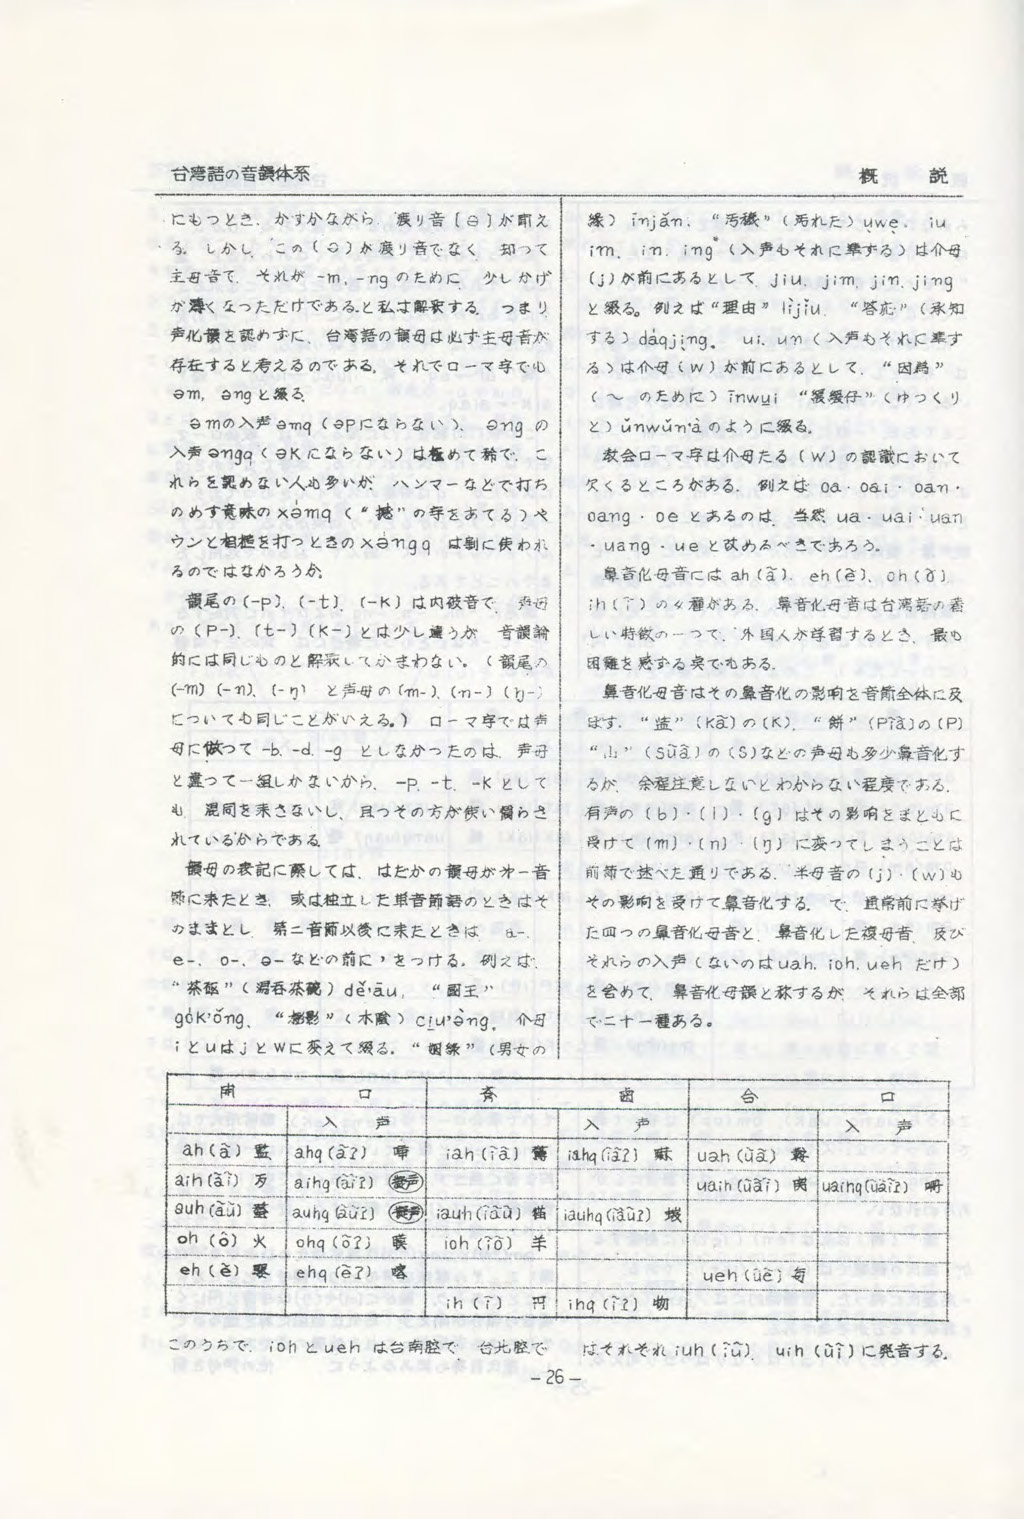 台湾語の音韻体系　概説
にもつとき、かすかながら、渡り音〔ə〕が聞え
る。しかし、この〔ə〕が渡り音でなく、却つて
主母音で、それが -m, -ng のために、少しかげ
が薄くなつただけであると私は解釈する。つまり
声化韻を認めずに、台湾語の韻母は必ず主母音が
存在すると考えるのである。それでローマ字でも
əm, əng と綴る。
əmの入声əmq（əpにならない）、əng の
入声əngq（əKにならない）は極めて稀で、こ
れらを認めない人も多いが、ハンマーなどで打ち
のめす意味の xə̀mq（“撼”の字をあてる）や
ウンと相槌を打つときの xə̀ngq は割に使われ
るのではなかろうか。
韻尾の〔-p〕、〔-t〕、〔-K〕は内破音で、声母
の〔P-〕、〔t-〕〔K-〕とは少し違うが、音韻論
的には同じものと解釈してかまわない。（韻尾の
〔-m〕〔-n〕、〔-ŋ〕と声母の〔m-〕、〔n-〕〔ŋ-〕
についても同じことがいえる。）ローマ字では声
母に倣つて -b, -d, -g としなかつたのは、声母
と違つて一組しかないから、-p, -t, -K として
も、混同を来さないし、且つその方が使い慣らさ
れているからである。
韻母の表記に際しては、はだかの韻母が第一音
節に来たとき、或は独立した単音節語のときはそ
のままとし、第二音節以後に来たときは、a-、
e-、o-、ə- などの前に ' をつける。例えば、
“茶甌”（湯呑茶碗）dě'āu, “國王”
gòK'ǒng、（木陰）、介母
i と u は j と w に変えて綴る。“姻緣”（男女の
縁）īnjǎn, （汚れた）ụwẹ, iu
im, in, ing（入声もそれに準ずる）は介母
〔j〕が前にあるとして、jiu, jim, jin, jing
と綴る。例えば“理由”lìjǐu, “答応”（承知
する）dáqjịng。ui, un（入声もそれに準ず
る）は介母〔w〕が前にあるとして、“因爲”
（～のために）īnwụi “緩緩仔”（ゆつくり
と）ǔnwǔn'à のように綴る。
教会ローマ字は介母たる〔w〕の認識において
欠くるところがある。例えば oa・oai・oan・
oang・oe とあるのは、当然 ua・uai・uan
・uang・ue と改めるべきであろう。
鼻音化母音には ah〔ã〕、eh〔ẽ〕、oh〔õ〕,
ih〔ĩ〕の四種がある。鼻音化母音は台湾語の著
しい特徴の一つで、外国人が学習するとき、最も
困難を感ずる点でもある。
鼻音化母音はその鼻音化の影響を音節全体に及
ぼす。〔Kã〕の〔K〕、“餅”〔Pĩã〕の〔P〕
“山”〔Sũã〕の〔S〕などの声母も多少鼻音化す
るが、余程注意しないとわからない程度である。
有声の〔b〕・〔l〕・〔g〕はその影響をまともに
受けて〔m〕・〔n〕・〔ŋ〕に変つてしまうことは
前節で述べた通りである。半母音の〔j〕・〔w〕も
その影響を受けて鼻音化する。で、通常前に挙げ
た四つの鼻音化母音と、鼻音化した複母音、及び
それらの入声（ないのは uah, ioh, ueh だけ）
を含めて、鼻音化母韻と称するが、それらは全部
で二十一種ある。
開口　齊歯　合口
入声　入声　入声
ah〔ã〕　ahq〔ãʔ〕　iah〔ĩã〕　iahq〔ĩãʔ〕　uah〔ũã〕
aih〔ãĩ〕　aihq〔ãĩʔ〕 擬声　uaih〔ũãĩ〕　uaihq〔ũãĩʔ〕
auh〔ãũ〕　auhq〔ãũʔ〕 擬声　iauh〔ĩãũ〕 猫　iauhq〔ĩãũʔ〕
oh〔õ〕 火　ohq〔õʔ〕 膜　ioh〔ĩõ〕 羊
eh〔ẽ〕 嬰　ehq〔ẽʔ〕　ueh〔ũẽ〕 每
ih〔ĩ〕 円　ihq〔ĩʔ〕 物
このうちで、ioh と ueh は台南腔で、台北腔で　はそれぞれ iuh〔ĩũ〕、uih〔ũĩ〕に発音する。
－26－